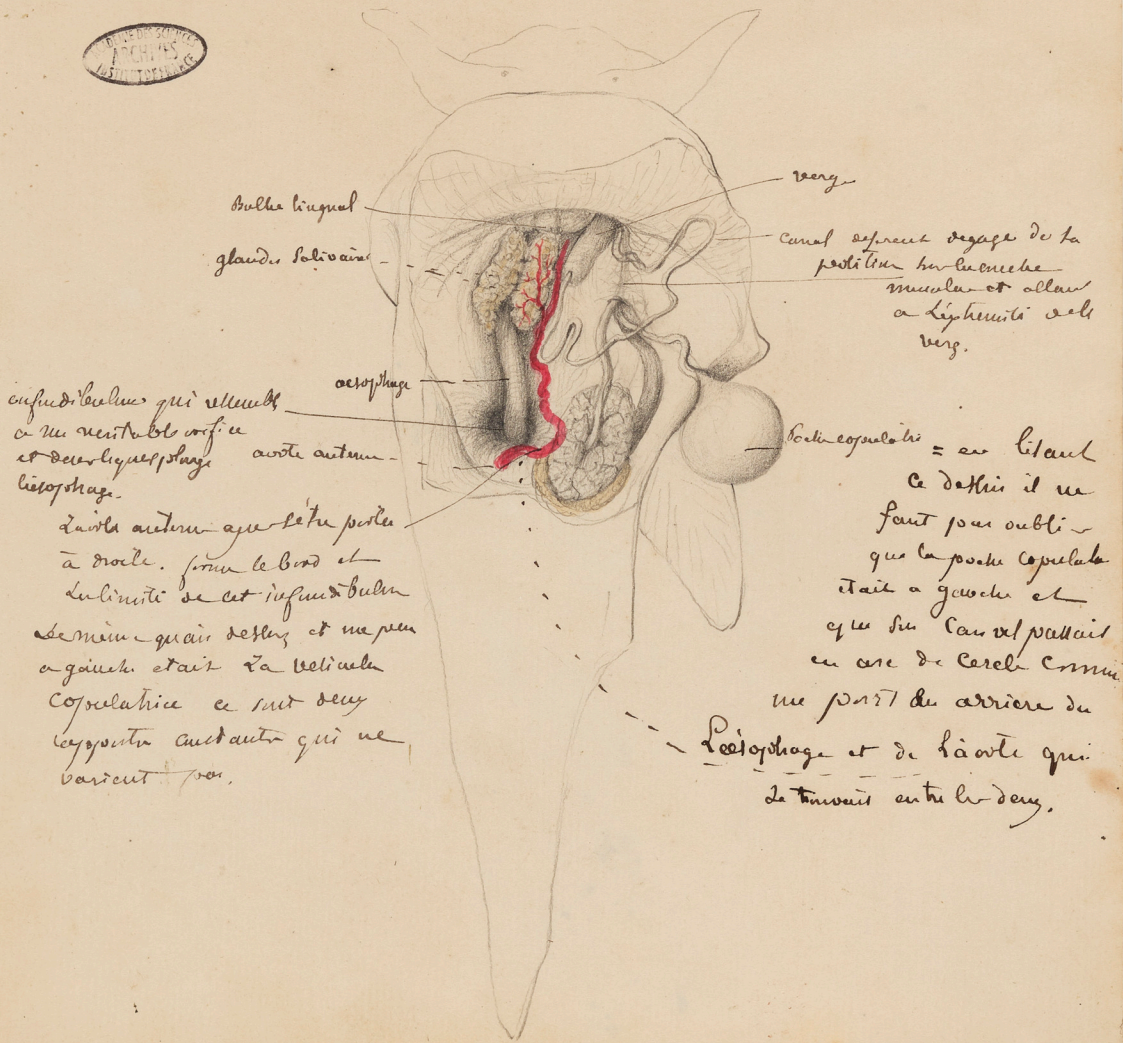 ACADEMIE DES SCIENCES
ARCHIVES
INSTITUT DE FRANCE
Bulbe lingual
glandes Salivaires
aesophage
infundibulum qui ressemble
a un veritable orifice
et
l'aesophage.
aorte anterieure
L'aorte anterieure apres s'être portée
à droite. forme le bord et
la limite de cet infundibulum
de même qu'au dessus et un peu
a gauche etait La vesicule
Copulatrice ce sont deux
rapports constants qui ne
varient pas.
verge
canal deferent degagé de sa
position
musculaire et allant
a L'extremité de la
verge.
Poche copulatrice = en lisant
ce dessin il ne
faut pas oublier
que la poche copulatrice
etait a gauche et
que son Canal passait
en arc de cercle comme
un pont en arriere de
L'œsophage et de L'aorte qui
se trouvait entre les deux.